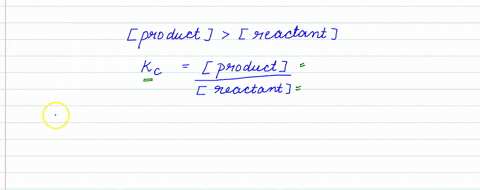 [product] > [reactant]
Kc = [product]
[reactant]